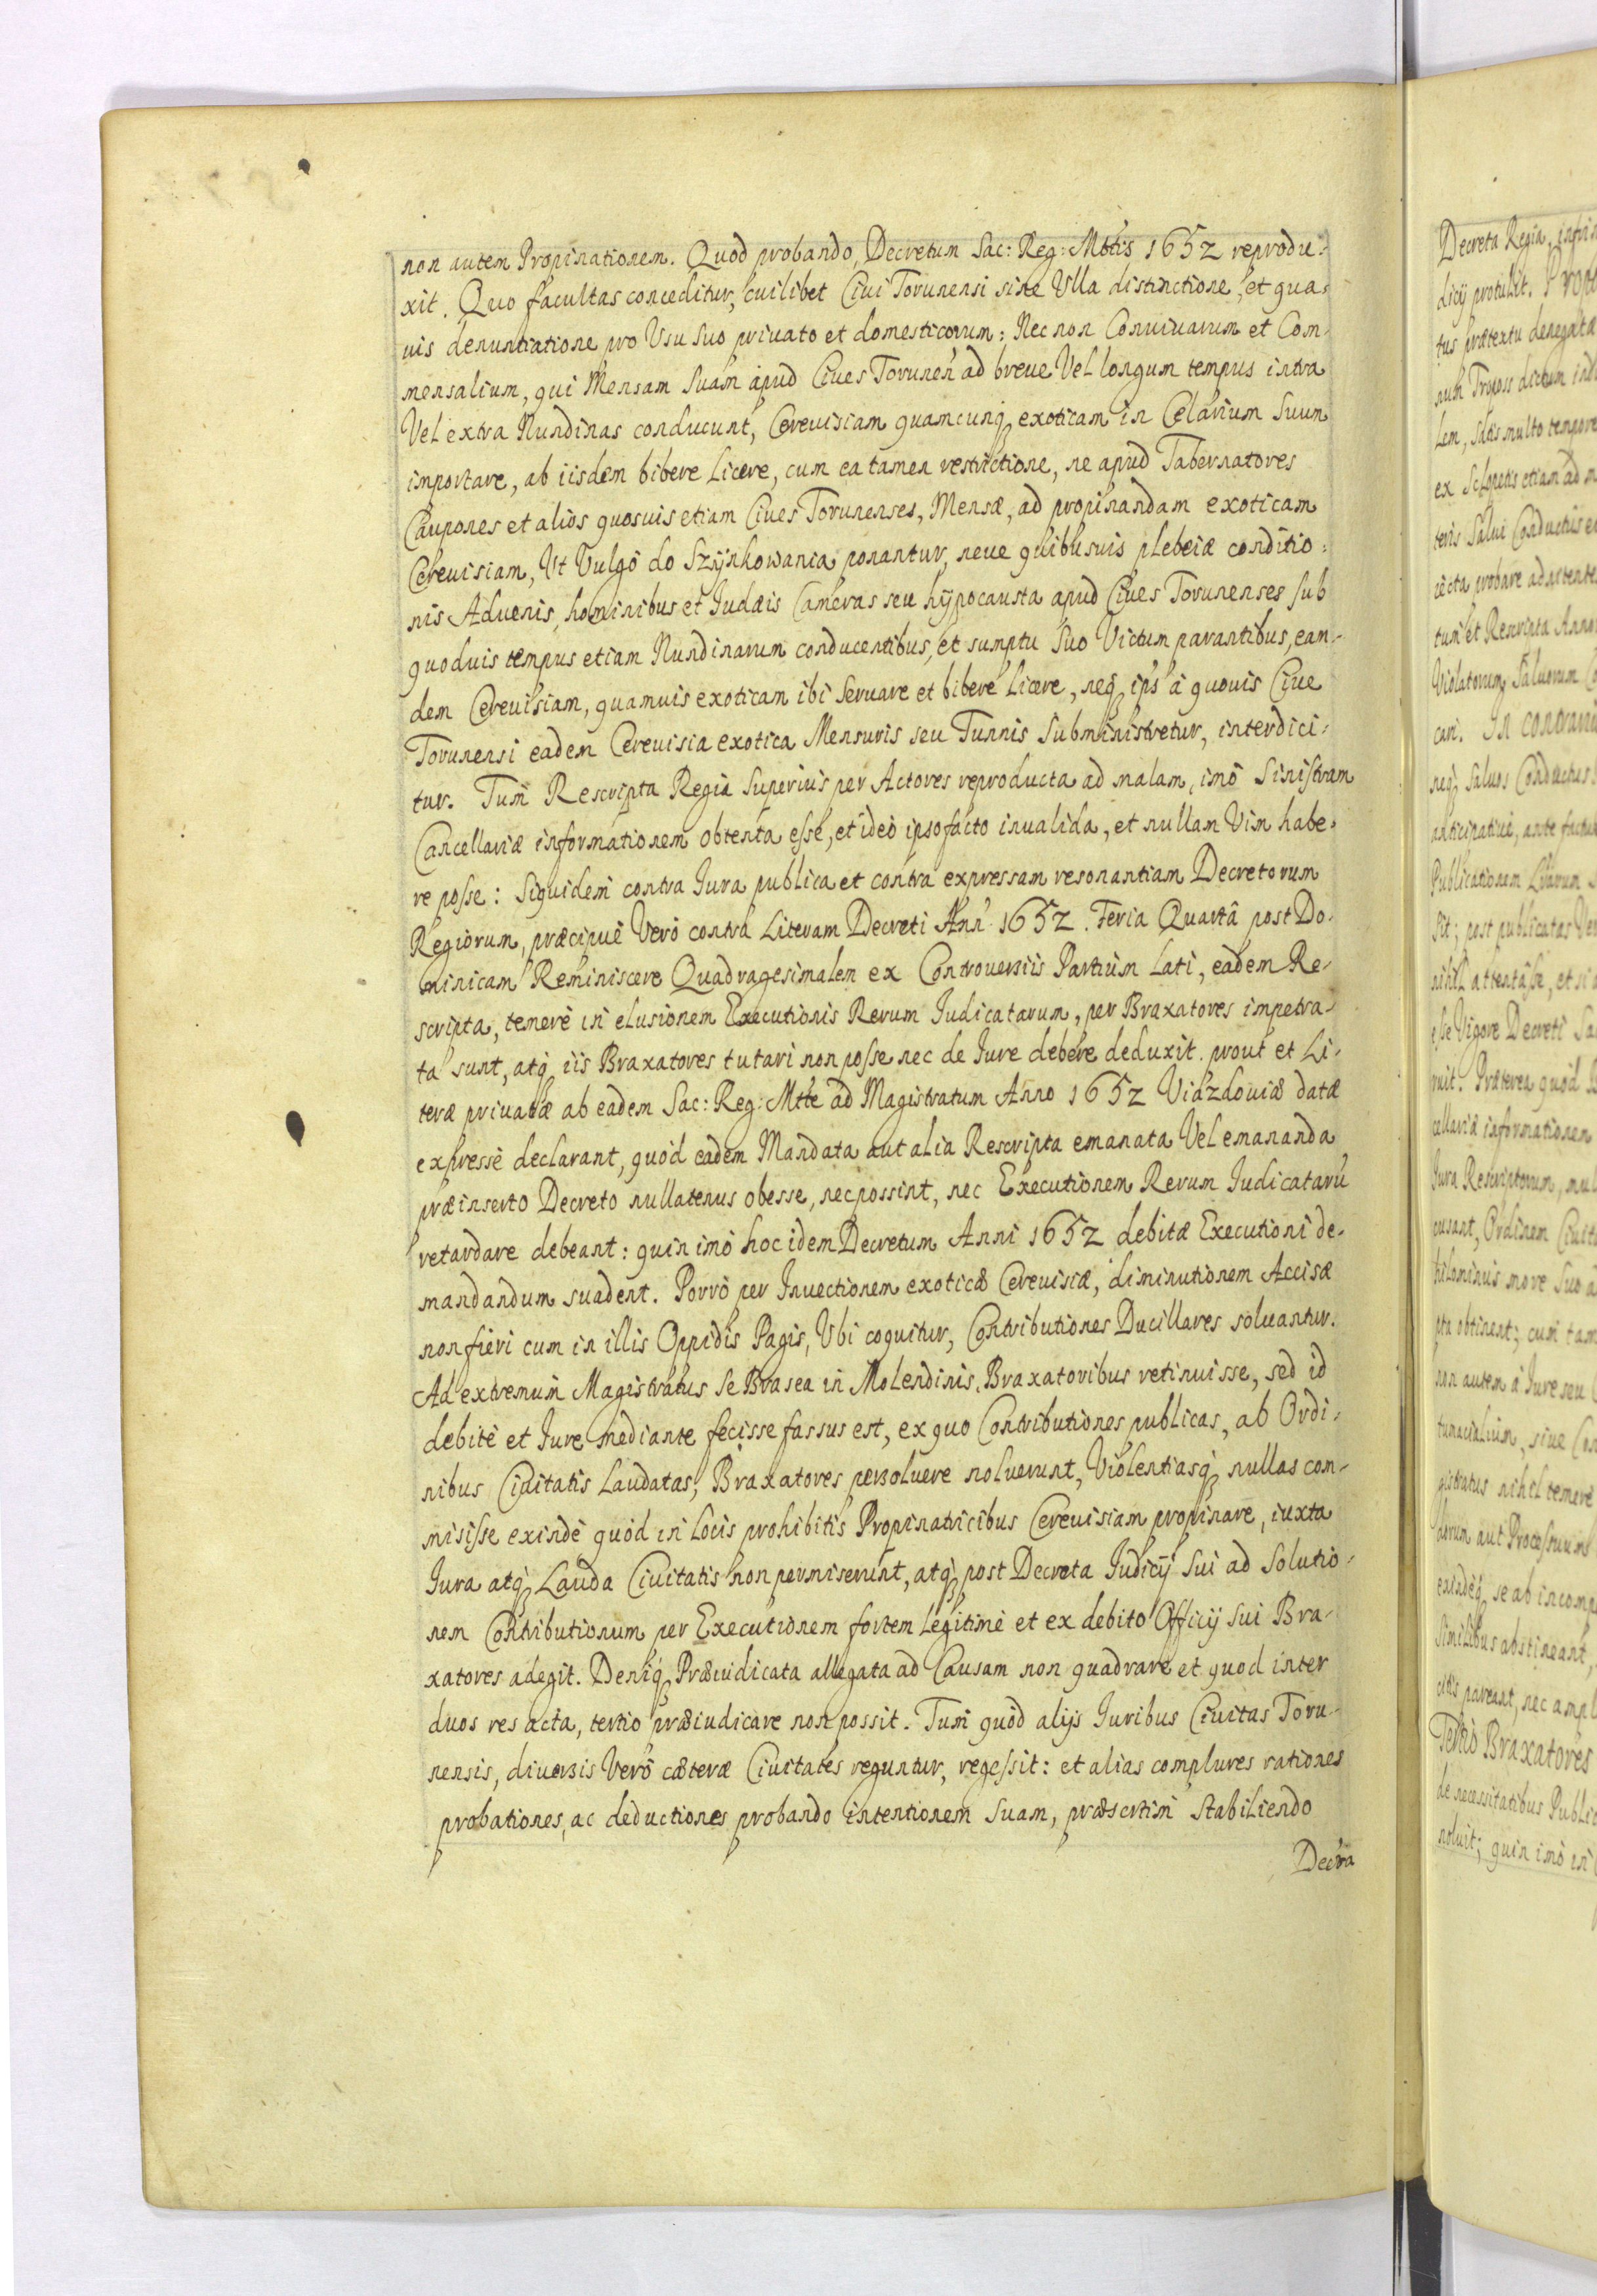 non autem Propinationem. Quod probando, Decretum Sac: Reg: Mttis 1652 reprodu-
xit. Quo facultas conceditur, cuilibet Ciui Torunensi sine Ulla distinctione, et qua-
uis denuntiatione pro Usu suo priuato et domesticorum: Nec non Conuiuarum et Com-
mensalium, qui Mensam Suam apud Ciues Torunen̄ ad breue Vel longum tempus intra
Vel extra Nundinas conducunt, Cereuisiam quamcunq exoticam in Celarium Suum
importare, ab iisdem bibere Licere, cum ea tamen restrictione, ne apud Tabernatores
Caupones et alios quosuis etiam Ciues Torunenses, Mensæ, ad propinandam exoticam
Cereuisiam, Ut Vulgò do Szÿnkowania ponantur, neue quibusuis plebeiæ conditio-
nis Aduenis, hominibus et Iudæis Cameras seu hÿpocausta apud Ciues Torunenses sub
quoduis tempus etiam Nundinarum conducentibus, et sumptu Suo Victum parantibus, ean-
dem Cereuisiam, quamuis exoticam ibi Seruare et bibere Licere, neq ips' à quouis Ciue
Torunensi eadem Cereuisia exotica Mensuris seu Tunnis Subministretur, interdici-
tur. Tum Rescripta Regia Superius per Actores reproducta ad malam, imò Sinistram
Cancellariæ informationem obtenta esse, et ideò ipso facto inualida, et nullam Vim habe-
re posse: Siquidem contra Iura publica et contra expressam resonantiam Decretorum
Regiorum, præcipuè Verò contra Literam Decreti Ann̄ 1652. Feria Quartâ post Do-
minicam Reminiscere Quadragesimalem ex Controuersiis Partium Lati, eadem Re-
scripta, temerè in elusionem Executionis Rerum Iudicatarum, per Braxatores impetra-
ta sunt, atq iis Braxatores tutari non posse nec de Iure debere deduxit. prout et Li-
teræ priuatæ ab eadem Sac: Reg: Mtte ad Magistratum Anno 1652 Viazdouiæ datæ
expressè declarant, quòd eadem Mandata aut alia Rescripta emanata Vel emananda
præinserto Decreto nullatenus obesse, nec possint, nec Executionem Rerum Iudicatarū
retardare debeant: quin imò hoc idem Decretum Anni 1652 debitæ Executioni de-
mandandum suadent. Porrò per Inuectionem exoticæ Cereuisiæ, diminutionem Accisæ
non fieri cum in illis Oppidis Pagis, Ubi coquitur, Contributiones Ducillares soluantur.
Ad extremum Magistratus Se Brasea in Molendinis, Braxatoribus retinuisse, sed id
debitè et Iure mediante fecisse fassus est, ex quo Contributiones publicas, ab Ordi-
nibus Ciuitatis Laudatas, Braxatores persoluere noluerunt, Violentiasq nullas com-
misisse exindè quòd in Locis prohibitis Propinatricibus Cereuisiam propinare, iuxta
Iura atq Lauda Ciuitatis non permiserunt, atq post Decreta Iudicÿ Sui ad Solutio-
nem Contributionum per Executionem fortem Legitimè et ex debito Officÿ Sui Bra-
xatores adegit. Deniq Præiudicata allegata ad Causam non quadrare et quod inter
duos res acta, tertio præiudicare non possit. Tum quòd alijs Iuribus Ciuitas Toru-
nensis, diuersis Verò cæteræ Ciuitates reguntur, regessit: et alias complures rationes
probationes, ac deductiones probando intentionem Suam, præsertim Stabiliendo
Decra
Decreta Regia,
dicÿ protulit.
tus prætextu denegatæ
Lem, Satis multo tempore
tum et Rescripta Anno
Violatorum Saluorum
cari. In contrariū
neq Saluos Conductus
anticipatiuè, ante factam
Publicationem
sit; post publicatas
nihil attentâsse, et si
esse Vigore Decreti Sa
ruit. Præterea quod
cellariæ informationem
Iura Rescriptorum, nul
cusant, Ordinem Ciuit
hilominus more Suo
pta obtinent; cum tam
non autem à Iure seu
gistratus nihil temerè
dorum aut Processuum
exindeq se ab incomp
Similibus abstineant,
citis pareant, nec ampl
Tertiò Braxatores
de necessitatibus Public
noluit; quin imò in